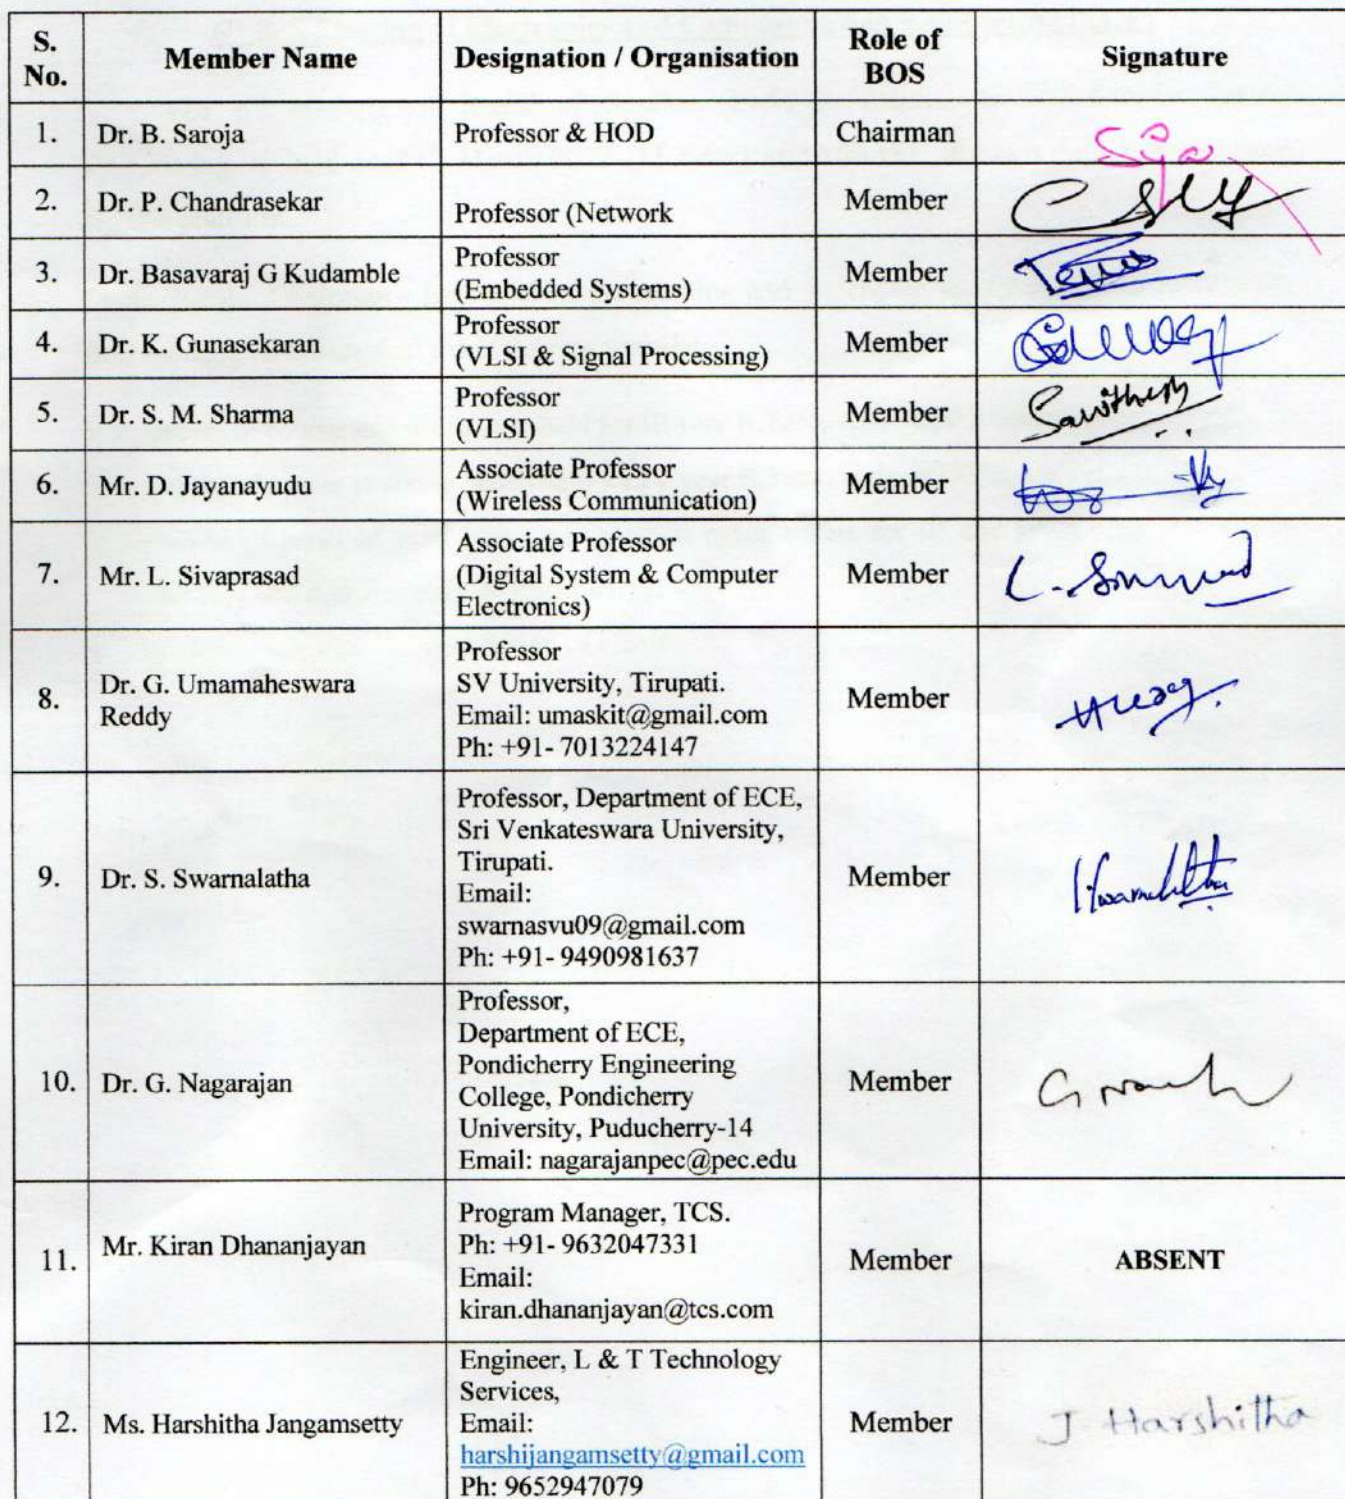 S. No. Member Name Designation / Organisation Role of BOS Signature
1. Dr. B. Saroja Professor & HOD Chairman
2. Dr. P. Chandrasekar Professor (Network Member
3. Dr. Basavaraj G Kudamble Professor
(Embedded Systems) Member
4. Dr. K. Gunasekaran Professor
(VLSI & Signal Processing) Member
5. Dr. S. M. Sharma Professor
(VLSI) Member
6. Mr. D. Jayanayudu Associate Professor
(Wireless Communication) Member
7. Mr. L. Sivaprasad Associate Professor
(Digital System & Computer
Electronics) Member
8. Dr. G. Umamaheswara
Reddy
Professor
SV University, Tirupati.
Email: umaskit@gmail.com
Ph: +91- 7013224147
Member
9. Dr. S. Swarnalatha
Professor, Department of ECE,
Sri Venkateswara University,
Tirupati.
Email:
swarnasvu09@gmail.com
Ph: +91- 9490981637
Member
10. Dr. G. Nagarajan
Professor,
Department of ECE,
Pondicherry Engineering
College, Pondicherry
University, Puducherry-14
Email: nagarajanpec@pec.edu
Member
11. Mr. Kiran Dhananjayan
Program Manager, TCS.
Ph: +91- 9632047331
Email:
kiran.dhananjayan@tcs.com
Member ABSENT
12. Ms. Harshitha Jangamsetty
Engineer, L & T Technology
Services,
Email:
harshijangamsetty@gmail.com
Ph: 9652947079
Member J Harshitha